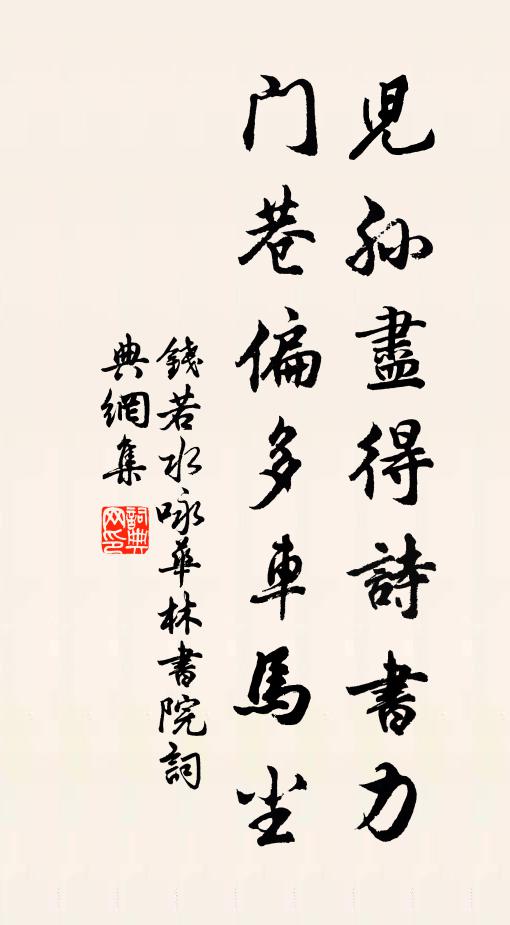 兒孫盡得詩書力
門巷偏多車馬尘
錢若水咏華林書院詞
典網集
詞典网印